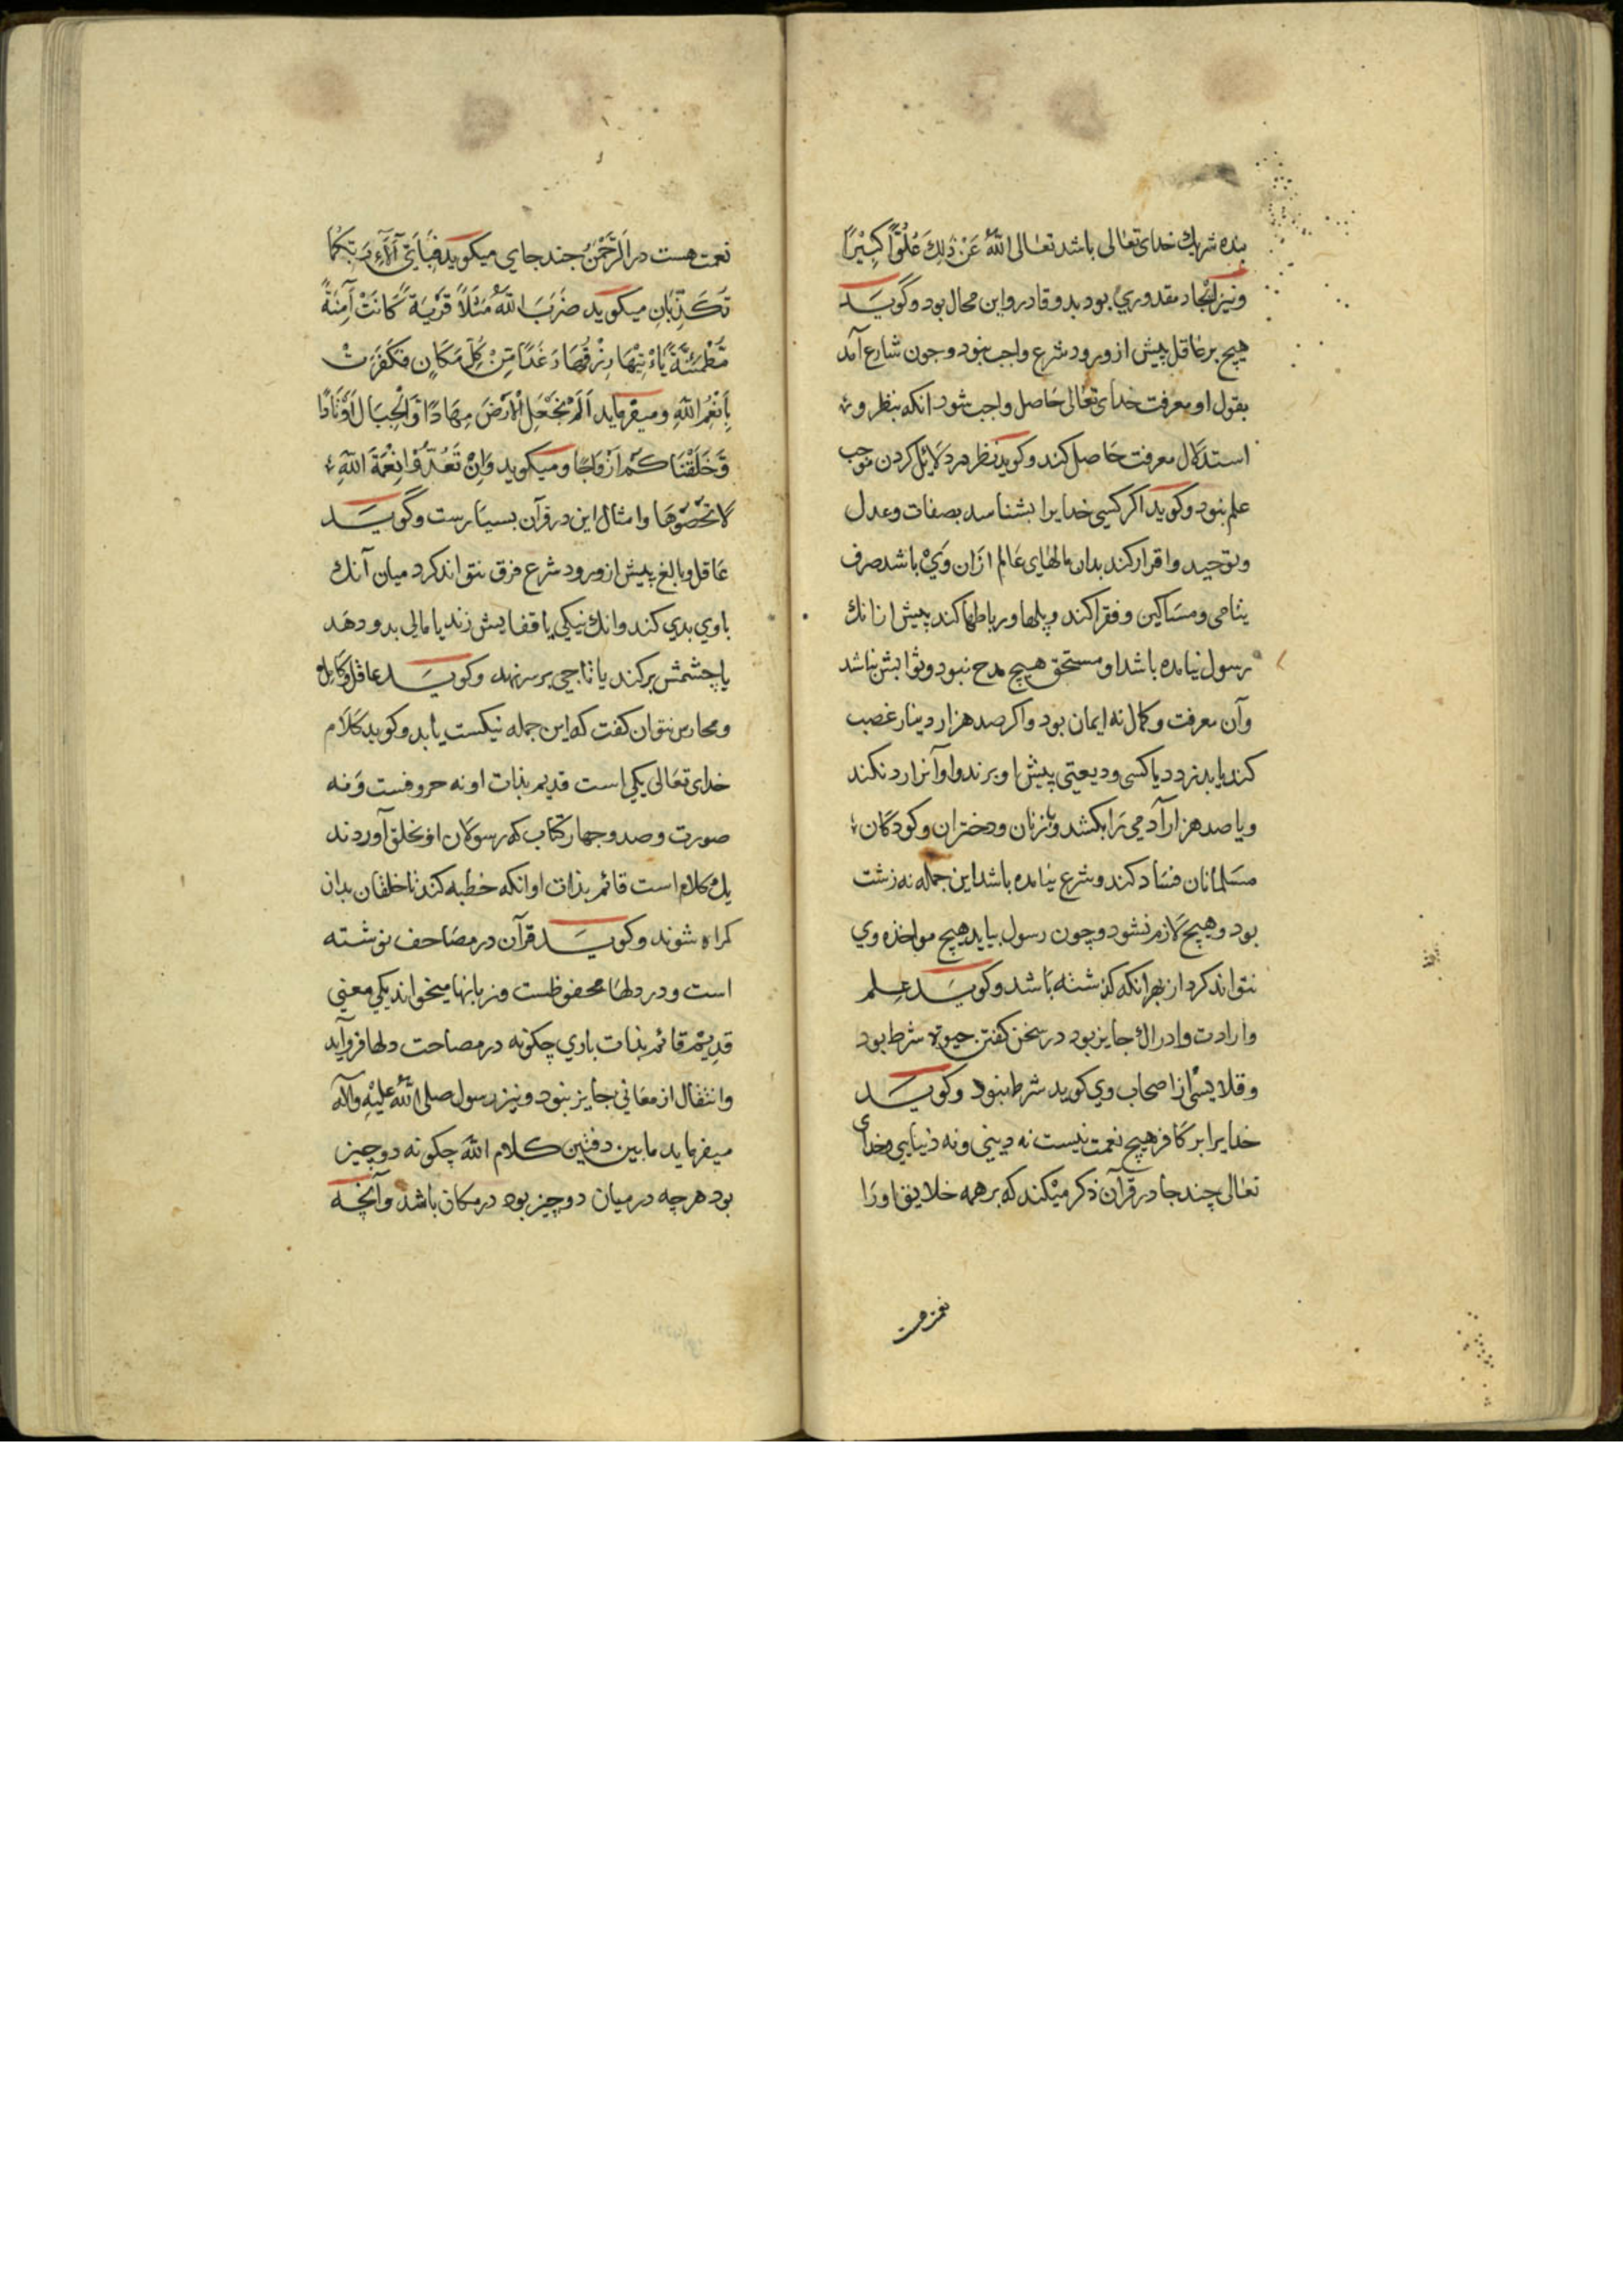 بنده شریك خدای تعالی باشد تعالی اللّٰهُ عَنْ ذٰلِكَ عُلُوًّا كَبِیْرًا
و نیز ایجاد مقدوری بود بدو قادر و این محال بود و گویَد
هیچ بر عاقل پیش از ورود شرع واجب نبود و چون شارع آمد
بقول او معرفت خدای تعالی حاصل و واجب شود انکه بنظر و
استدلال معرفت حاصل کند و کوید نظر در دلایل کردن موجب
علم نبود و کوید اکر کسی خدایرا بشناسد بصفات و عدل
و توحید و اقرار کند بدان مالهای عالم ازان وی باشد صرف
یتامی و مساکین و فقرا کند و پلها و رباطها کند پیش ازانك
رسول نیامده باشد او مستحق هیچ مدح نبود و ثوابش نباشد
وآن معرفت و کمال نه ایمان بود و اکر صد هزار دینار غصب
کند یا بدزدد یا کسی ودیعتی پیش او برند و او آنرا رد نکند
و یا صد هزار آدمی را بکشد و بزنان و دختران و کودکان
مسلمانان فساد کند و شرع نیامده باشد این جمله نه زشت
بود و هیچ لازم نشود و چون رسول بیاید هیچ مواخذه وی
نتواند کرد از بهر انکه کذشته باشد و کویَد علم
و ارادت و ادراك جایز بود در سخن کفتن حیوة شرط بود
و قلانسی از اصحاب وی کوید شرط نبود و کویَد
خدایرا بر کافر هیچ نعمت نیست نه دینی و نه دنیایی و خدای
تعالی چند جا در قرآن ذکر میکند که بر همه خلایق او را
نعمت هست
نعمت هست در اَلرَّحْمٰنُ چند جای میکوید فَبِاَیِّ آلَآءِ رَبِّكُمَا
تُكَذِّبَانِ میکوید ضَرَبَ اللّٰهُ مَثَلًا قَرْیَةً كَانَتْ آمِنَةً
مُّطْمَئِنَّةً یَاْتِیْهَا رِزْقُهَا رَغَدًا مِّنْ كُلِّ مَكَانٍ فَكَفَرَتْ
بِاَنْعُمِ اللّٰهِ و میفرماید اَلَمْ نَجْعَلِ الْاَرْضَ مِهَادًا وَّالْجِبَالَ اَوْتَادًا
وَّخَلَقْنَاكُمْ اَزْوَاجًا و میکوید وَاِنْ تَعُدُّوْا نِعْمَةَ اللّٰهِ
لَا تُحْصُوْهَا و امثال این در قرآن بسیارست و گویَد
عاقل و بالغ پیش از ورود شرع فرق نتواند کرد میان آنك
با وی بدی کند و انك نیکی یا قفایش زند یا مالی بدو دهد
یا چشمش برکند یا تاجی بر سر نهد و کویَد عاقل و کامل
و نتوان کفت که این جمله نیکست یا بد و کوید کلام
خدای تعالی یکی است قدیم بذات او نه حروفست و نه
صورت و صد و چهار کتاب که رسولان او بخلق آوردند
یك کلام است قائم بذات او انکه خطبه کند تا خلقان بدان
کمراه شوند و کویَد قرآن در مصاحف نوشته
است و در دلها محفوظست و زبانها میخواند یکی معنی
قدیم قائم بذات باری چکونه در مصاحت و دلها فرو آید
و انتقال از معانی جایز نبود و نیز رسول صلی اللّٰه علیه و آله
میفرماید ما بین دفتین كلام اللّٰه چکونه دو چیز
بود هر چه در میان دو چیز بود در مکان باشد و آنچه